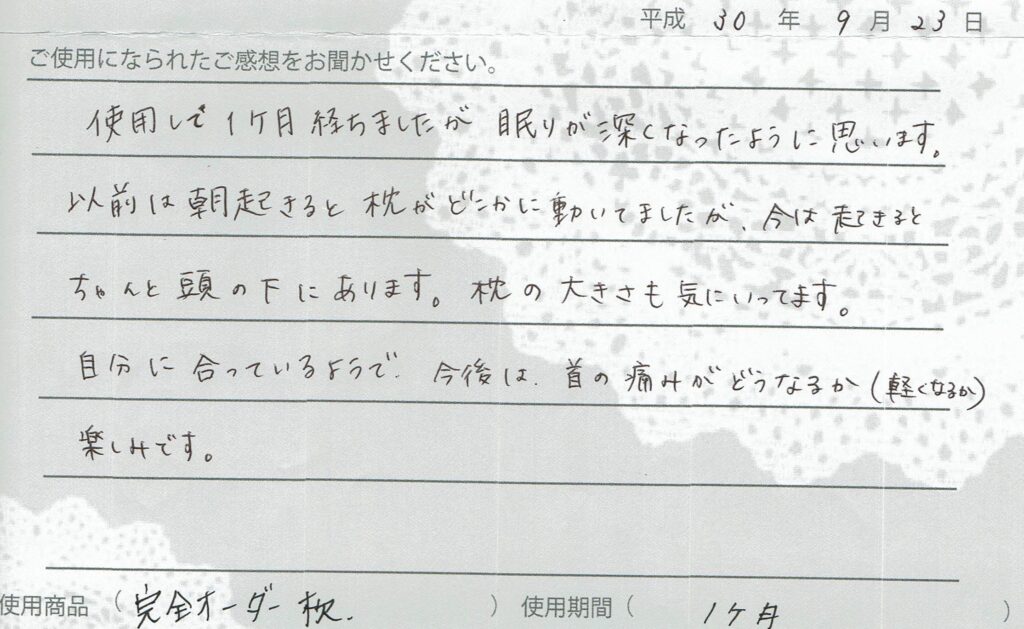 平成 30 年 9 月 23 日
ご使用になられたご感想をお聞かせください。
使用して1ケ月経ちましたが 眠りが深くなったように思います。
以前は朝起きると枕がどこかに動いてましたが、今は起きると
ちゃんと頭の下にあります。枕の大きさも気にいってます。
自分に合っているようで、今後は、首の痛みがどうなるか(軽くなるか)
楽しみです。
使用商品 ( 完全オーダー枕. ) 使用期間 ( 1ケ月 )